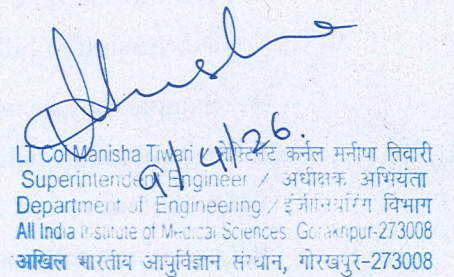 9/4/26.
LT Col Manisha Tiwari / लेफ्टिनेंट कर्नल मनीषा तिवारी
Superintendent Engineer / अधीक्षक अभियंता
Department of Engineering / इंजीनियरिंग विभाग
All India Institute of Medical Sciences Gorakhpur-273008
अखिल भारतीय आयुर्विज्ञान संस्थान, गोरखपुर-273008